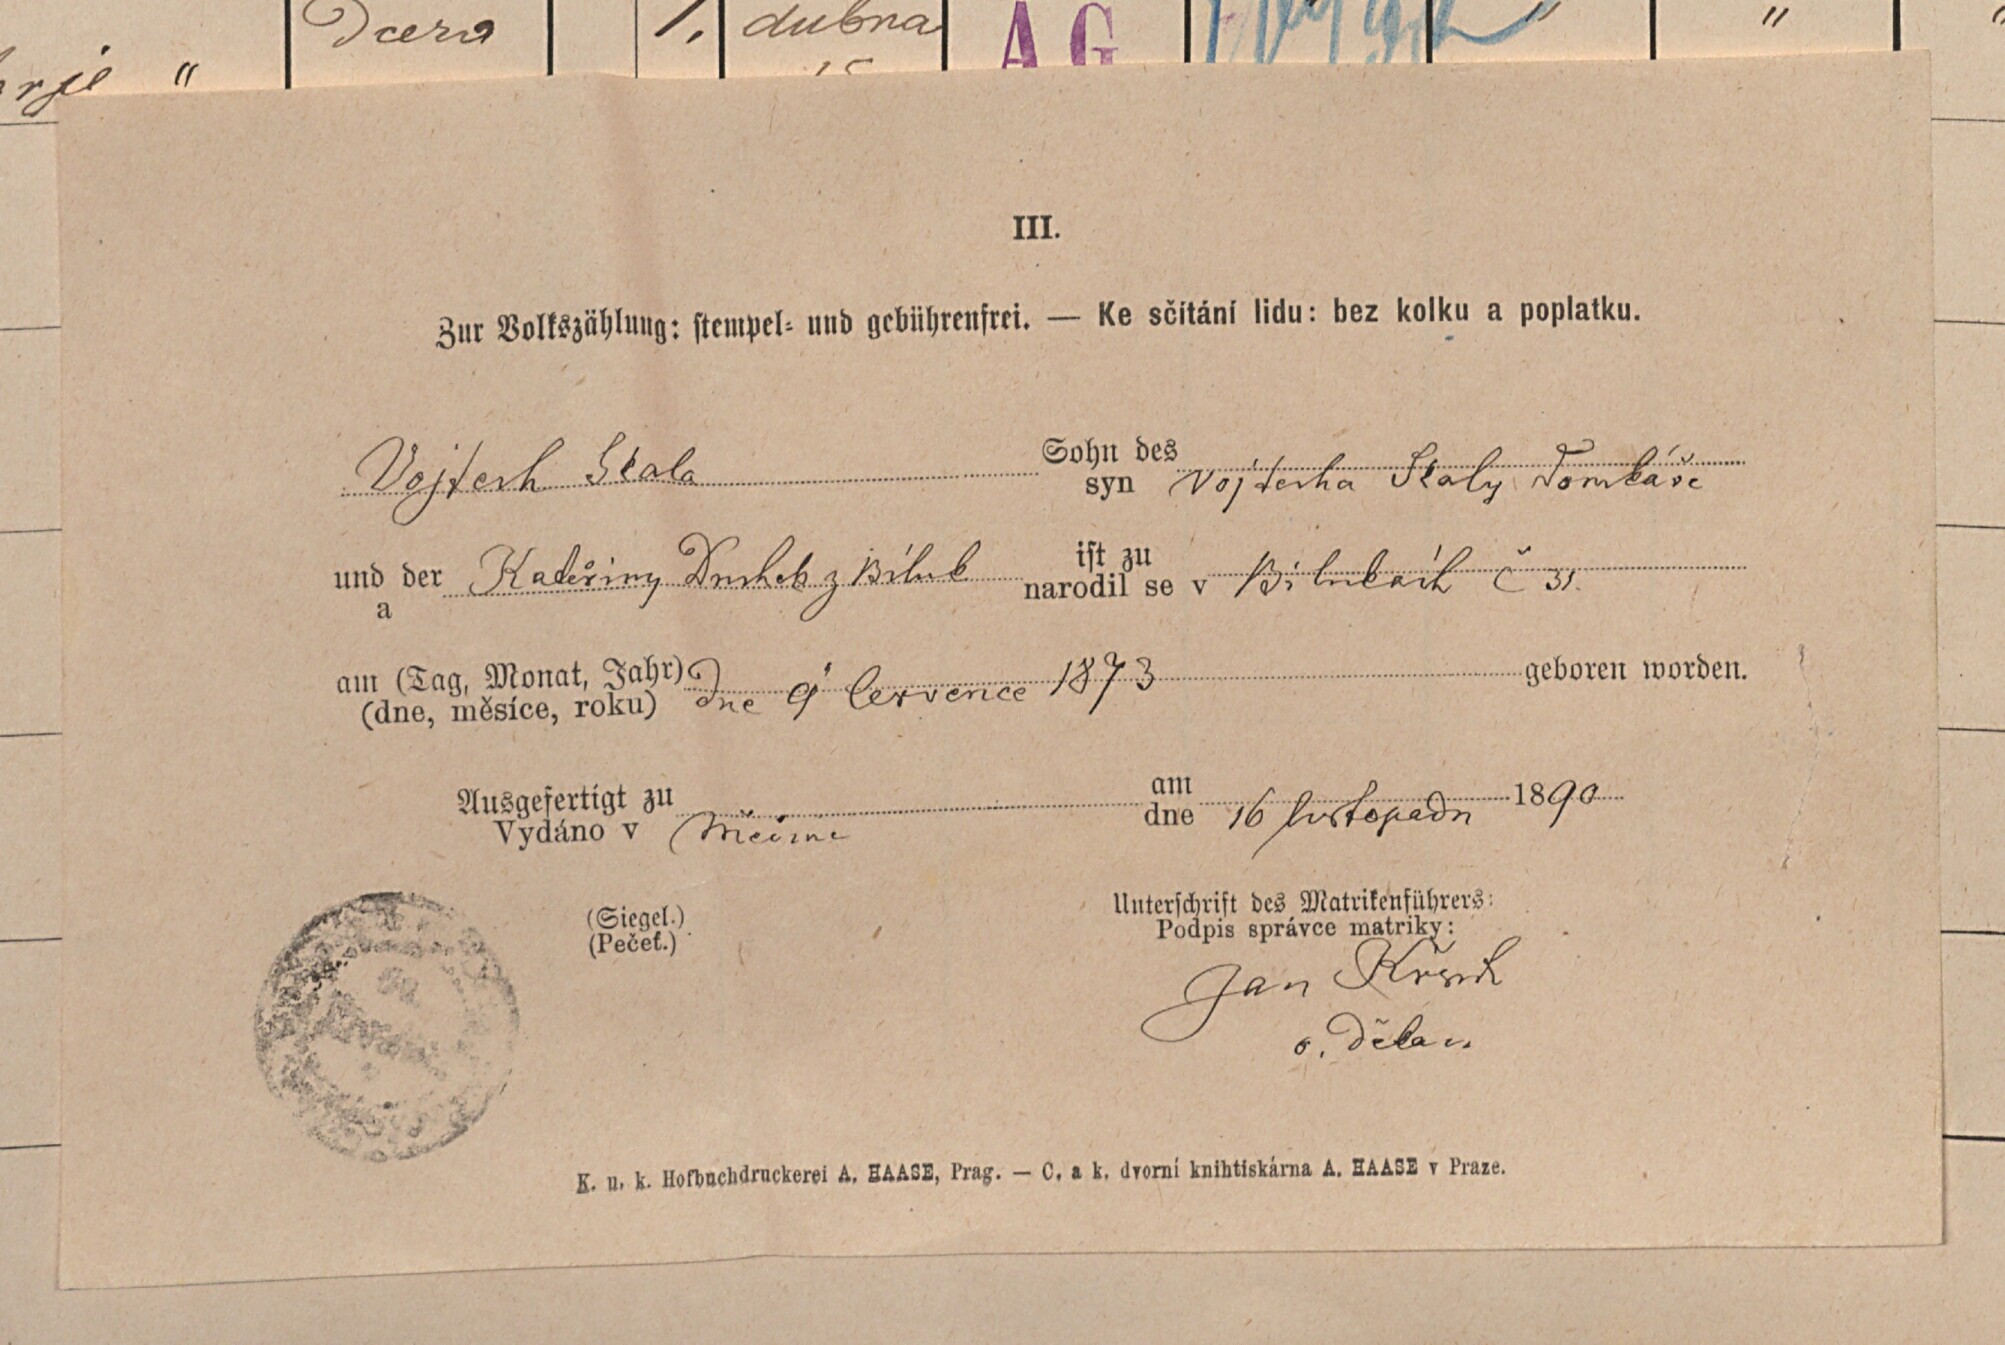 Dcera 1. dubna A G " "
"
III.
Zur Volkszählung: stempel- und gebührenfrei. — Ke sčítání lidu: bez kolku a poplatku.
Vojtech Skala Sohn des
syn Vojtecha Skaly
und der Kateřiny z ist zu
a narodil se v č 31.
am (Tag, Monat, Jahr) geboren worden.
(dne, měsíce, roku) Dne 9 července 1873
Ausgefertigt zu am 1890
Vydáno v dne 16 listopadu
(Siegel.) Unterschrift des Matrikenführers:
(Pečeť.) Podpis správce matriky:
Jan
K. u. k. Hofbuchdruckerei A. HAASE, Prag. — C. a k. dvorní knihtiskárna A. HAASE v Praze.